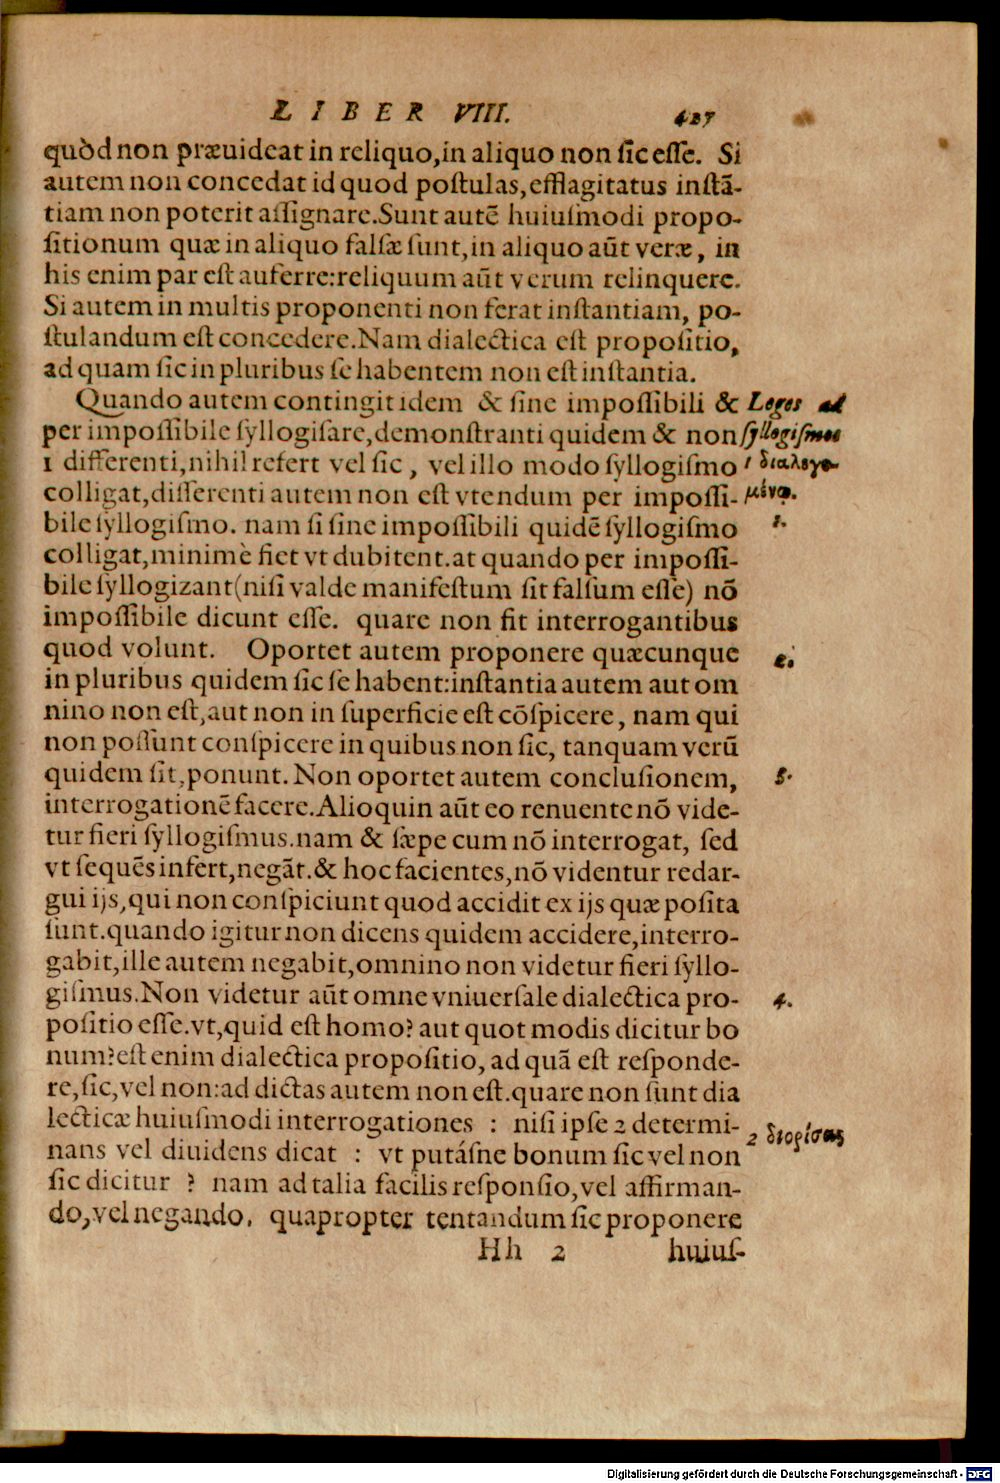 LIBER VIII. 427
quòd non præuideat in reliquo, in aliquo non ſic eſſe. Si
autem non concedat id quod poſtulas, efflagitatus inſtã-
tiam non poterit aſſignare. Sunt autẽ huiuſmodi propo-
ſitionum quæ in aliquo falſæ ſunt, in aliquo aũt veræ, in
his enim par eſt auferre: reliquum aũt verum relinquere.
Si autem in multis proponenti non ferat inſtantiam, po-
ſtulandum eſt concedere. Nam dialectica eſt propoſitio,
ad quam ſic in pluribus ſe habentem non eſt inſtantia.
Quando autem contingit idem & ſine impoſſibili &
Leges ad
per impoſſibile ſyllogiſare, demonſtranti quidem & non
ſyllogiſmos
1 differenti, nihil refert vel ſic, vel illo modo ſyllogiſmo
1 διαλεγο-
colligat, diſſerenti autem non eſt vtendum per impoſſi-
μένῳ.
bile ſyllogiſmo. nam ſi ſine impoſſibili quidẽ ſyllogiſmo
1.
colligat, minimè fiet vt dubitent. at quando per impoſſi-
bile ſyllogizant (niſi valde manifeſtum ſit falſum eſſe) nõ
impoſſibile dicunt eſſe. quare non fit interrogantibus
quod volunt. Oportet autem proponere quæcunque
2.
in pluribus quidem ſic ſe habent: inſtantia autem aut om
nino non eſt, aut non in ſuperficie eſt cõſpicere, nam qui
non poſſunt conſpicere in quibus non ſic, tanquam verũ
quidem ſit, ponunt. Non oportet autem concluſionem,
3.
interrogationẽ facere. Alioquin aũt eo renuente nõ vide-
tur fieri ſyllogiſmus. nam & ſæpe cum nõ interrogat, ſed
vt ſequẽs infert, negãt. & hoc facientes, nõ videntur redar-
gui ijs, qui non conſpiciunt quod accidit ex ijs quæ poſita
ſunt. quando igitur non dicens quidem accidere, interro-
gabit, ille autem negabit, omnino non videtur fieri ſyllo-
giſmus. Non videtur aũt omne vniuerſale dialectica pro-
4.
poſitio eſſe. vt, quid eſt homo? aut quot modis dicitur bo
num? eſt enim dialectica propoſitio, ad quã eſt reſponde-
re, ſic, vel non: ad dictas autem non eſt. quare non ſunt dia
lecticæ huiuſmodi interrogationes : niſi ipſe 2 determi-
2 διορίσας
nans vel diuidens dicat : vt putáſne bonum ſic vel non
ſic dicitur ? nam ad talia facilis reſponſio, vel affirman-
do, vel negando. quapropter tentandum ſic proponere
Hh 2 huiuſ-
Digitalisierung gefördert durch die Deutsche Forschungsgemeinschaft - DFG